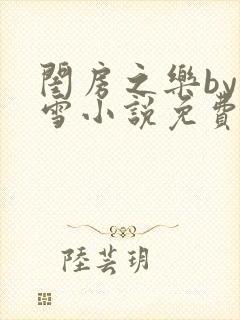 閨房之樂by
雪小說免費
陸芸玥